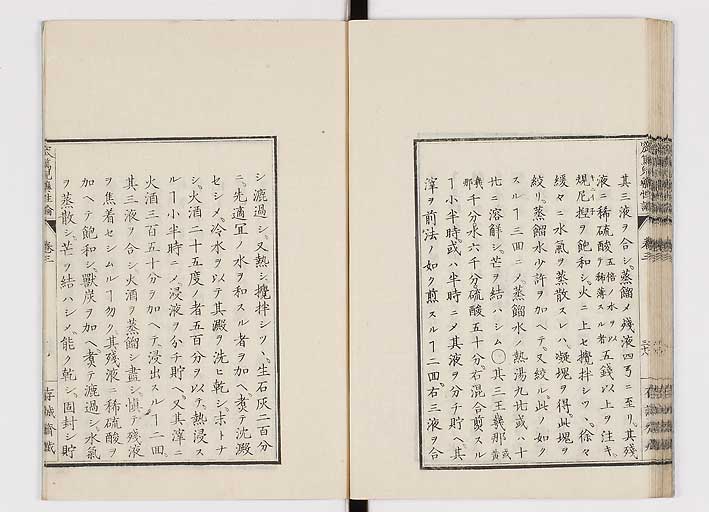 其三液ヲ合シ蒸餾メ残液四弓ニ至リ其殘
液ニ稀硫酸五倍ノ水ヲ以テ稀薄スル者五錢以上ヲ注キ
規尼捏ヲ飽和シ火ニ上セ攪拌シツヽ徐々
緩々ニ水氣ヲ蒸散スレハ凝塊ヲ得此塊ヲ
絞リ蒸餾水少許ヲ加ヘテ又絞ル此ノ如ク
スルヿ三四ニメ蒸餾水ノ熱湯九
ニ溶解シ芒ヲ結ハシム〇其三王幾那或黄
幾那千分水六千分硫酸五十分右混合煎スル
ヿ小半時或ハ半時ニメ其液ヲ分チ貯ヘ其
滓ヲ前法ノ如ク煎スルヿ二四右三液ヲ合
シ漉過シ又熱シ攪拌シツヽ生石灰二百分
ニ先適宜ノ水ヲ和スル者ヲ加ヘ煮テ沈澱
セシメ冷水ヲ以テ其澱ヲ洗ヒ乾シ末トナ
シ火酒二十五度ノ者五百分ヲ以テ熱浸ス
ルヿ小半時ニメ浸液ヲ分チ貯ヘ又其滓ニ
火酒三百五十分ヲ加ヘテ浸出スルヿ二四
其三液ヲ合シ火酒ヲ蒸餾シ盡シ愼テ残液
ヲ焦着セシムルヿ勿ク其残液ニ稀硫酸ヲ
加ヘテ飽和シ獸炭ヲ加ヘ煮テ漉過シ水氣
ヲ蒸散シ芒ヲ結ハシメ能ク乾シ固封シ貯
卷三
存誠齋藏